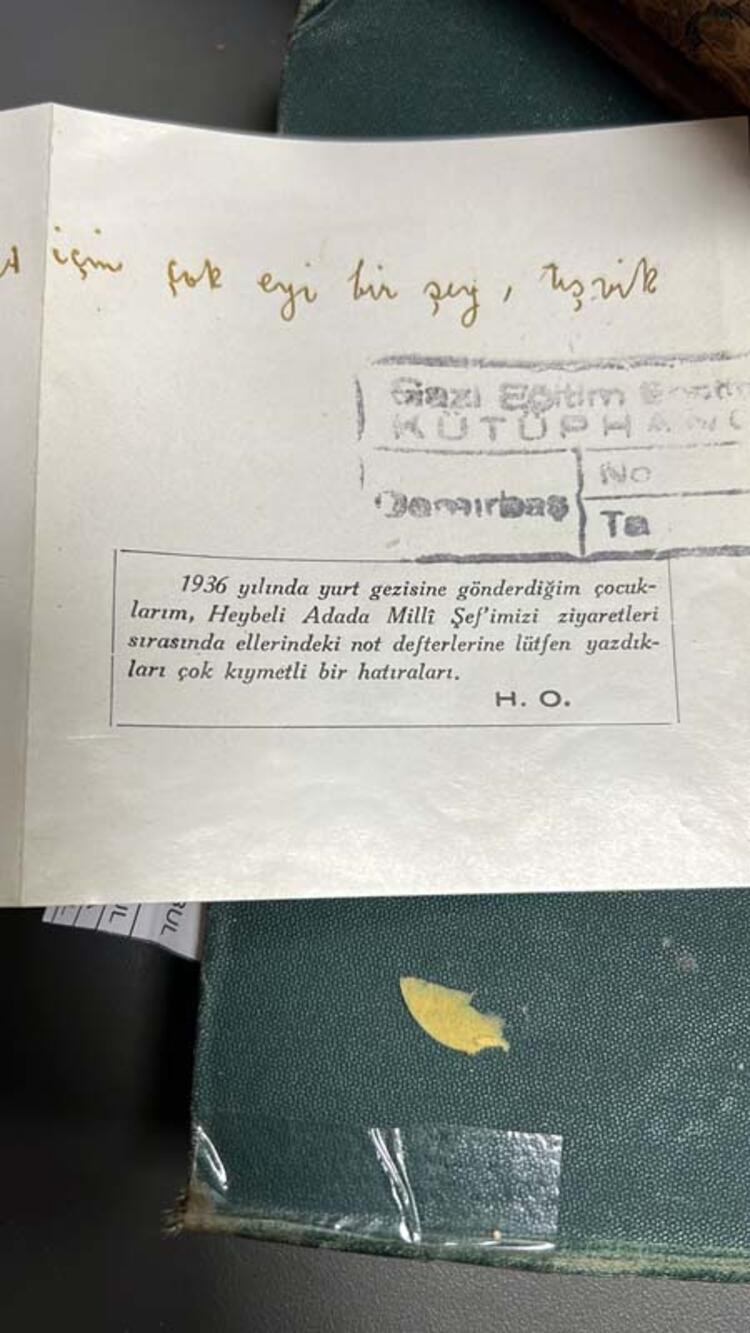 için çok eyi bir şey, teşvik
Gazi Eğitim
KÜTÜPHANE
No
Demirbaş
Ta
1936 yılında yurt gezisine gönderdiğim çocuk-
larım, Heybeli Adada Millî Şef'imizi ziyaretleri
sırasında ellerindeki not defterlerine lütfen yazdık-
ları çok kıymetli bir hatıraları.
H. O.